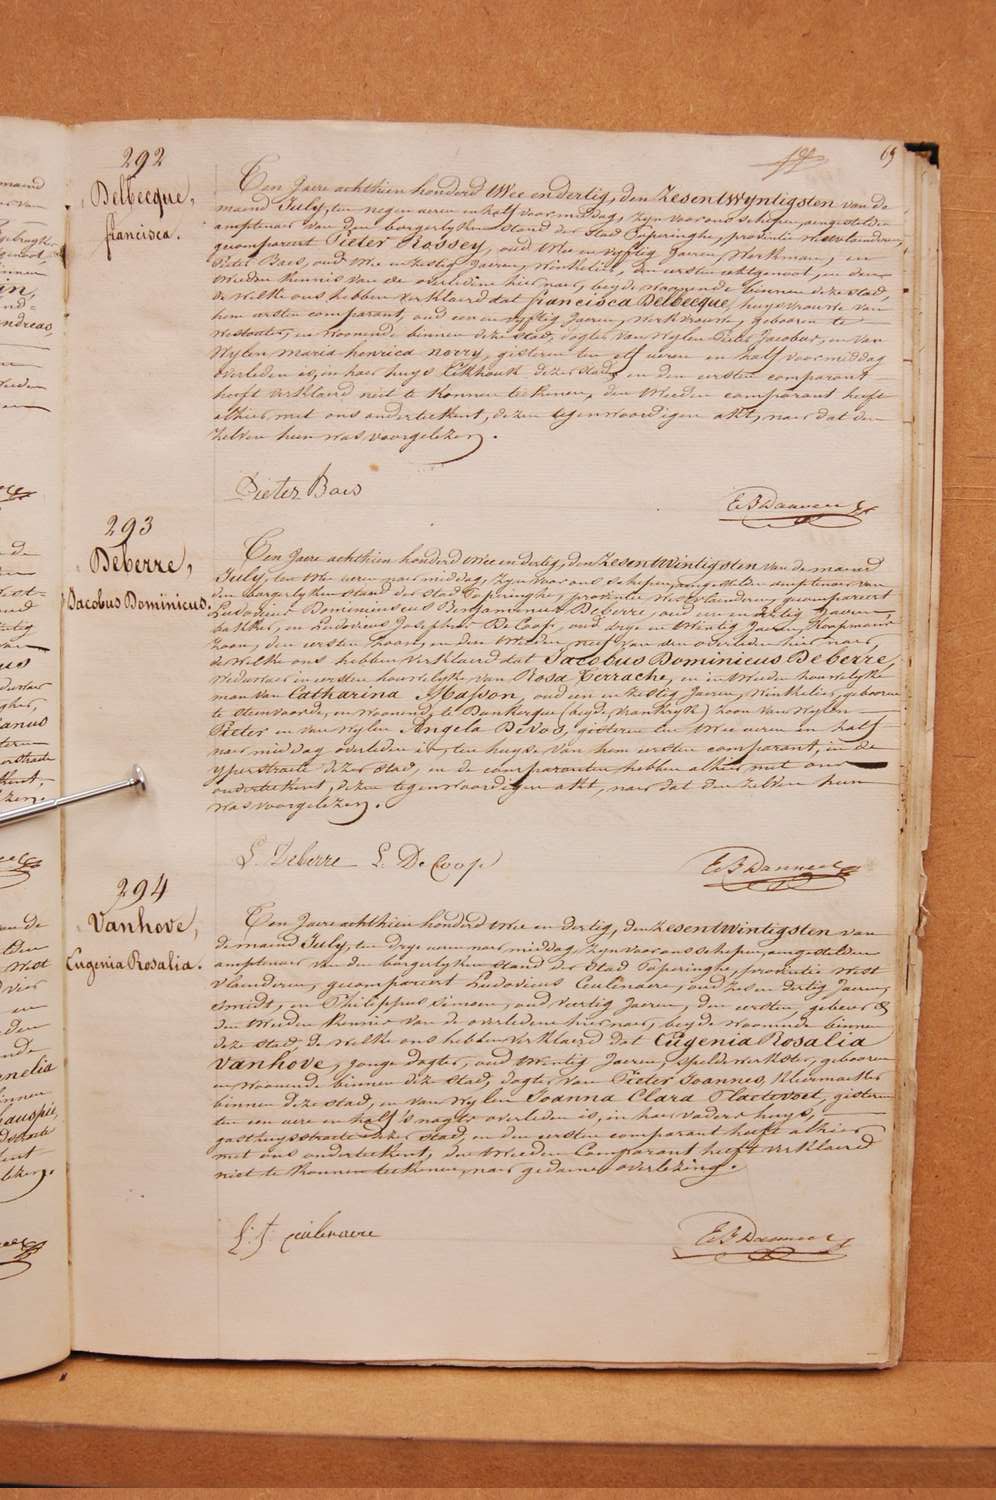 69
292
Delbecque,
francisca.
Een Jaere achthien honderd twee en dertig, den Zesentwyntigsten van de
maend July, ten negen ueren en half voormiddag, zyn voor ons schepen, aengestelden
amptenaer van den borgerlyken stand der stad Poperinghe, provintie westvlaenderen,
gecompareert Pieter Rossey, oud twee en vyftig Jaeren, Werkman, en
Pieter Baes, oud twee en zestig Jaeren, Winkelier, den eersten echtgenoot, en den
tweeden kennis van de overledene hier naer, beyde woonende binnen deze stad,
de welke ons hebben verklaerd dat francisca Delbecque, huysvrouwe van
hem eersten comparant, oud een en vyftig Jaeren, werkvrouwe, gebooren te
Westouter, en woonende binnen deze stad, dogter van wylen Pieter Jacobus, en van
Wylen maria henrica norry, gisteren ten elf ueren en half voormiddag
overleden is, in haer huys Eekhouk dezer stad, en den eersten comparant
heeft verklaerd niet te konnen teekenen, den tweeden comparant heeft
alhier met ons onderteekent, dezen tegenwoordigen akt, naer dat den
zelven hun was voorgelezen.
Pieter Baes
293
Deberre,
Jacobus Dominicus.
Een Jaere achthien honderd twee en dertig, den Zesentwintigsten van de maend
July, ten twee ueren naer middag, zyn voor ons schepen, aengestelden amptenaer van
den borgerlyken stand der stad Poperinghe, provintie westvlaenderen, gecompareert
Ludovicus Dominicus Benjaminus Deberre, oud een en dertig Jaeren,
bakker, en Ludovicus Josephus De Coop, oud drye en twintig Jaeren, Koopman
zoon, den eersten zoon, en den tweeden neef van den overleden hier naer,
de welke ons hebben verklaerd dat Jacobus Dominicus Deberre,
Weduwaer in eersten houwelyke van Rosa Terrache, en in tweede houwelyke
man van Catharina Masson, oud een en zestig Jaeren, Winkelier, gebooren
te Steenvoorde, en woonende te Dunkerque (ryke, vrankryk) zoon van wylen
Pieter en van wylen Angela Devos, gisteren ten twee ueren en half
naer middag overleden is, ten huyse van hem eersten comparant, in de
yperstraete dezer stad, en de comparanten hebben alhier met ons
onderteekent, dezen tegenwoordigen akt, naer dat den zelven hun
was voorgelezen.
L. Deberre L. De Coop
294
Vanhove,
Eugenia Rosalia.
Een Jaere achthien honderd twee en dertig, den Zesentwintigsten van
de maend July, ten drye ueren naer middag, zyn voor ons schepen, aengestelden
amptenaer van den borgerlyken stand der Stad Poperinghe, provintie West
vlaenderen, gecompareert Ludovicus Ceulenaere, oud zes en dertig Jaeren,
smidt, en Philippus Simoen, oud veertig Jaeren, den eersten, gebeur &
den tweeden kennis van de overledene hier naer, beyde woonende binnen
deze stad, de welke ons hebben verklaerd dat Eugenia Rosalia
Vanhove, jonge dogter, oud twintig Jaeren, spelde werkster, gebooren
en woonende binnen deze stad, dogter van Pieter Joannes, Kleermaeker
binnen deze stad, en van wylen Joanna Clara Plaetevoet, gisteren
ten een uere en half 's nagts overleden is, in haer vaders huys,
gasthuysstraete dezer stad, en den eersten comparant heeft alhier
met ons onderteekent, den tweeden Comparant heeft verklaerd
niet te konnen teekenen, naer gedaene overlezing.